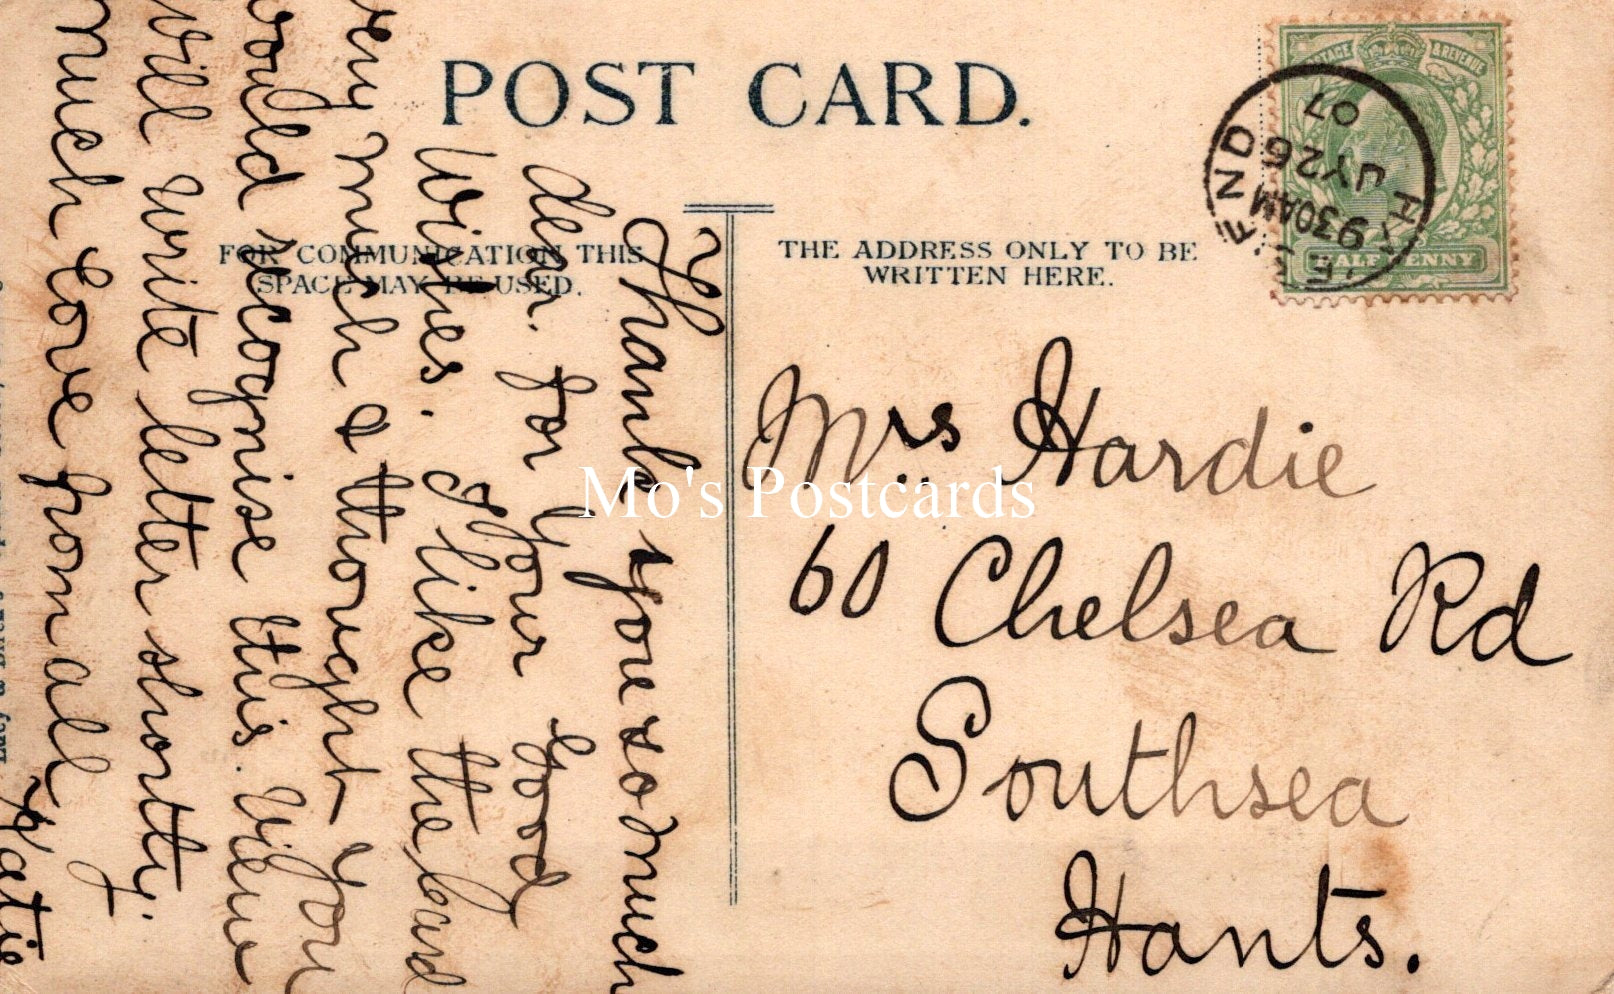 POST CARD.
FOR COMMUNICATION THIS
SPACE MAY BE USED.
THE ADDRESS ONLY TO BE
WRITTEN HERE.
POSTAGE & REVENUE
HALFPENNY
9 30 AM
JY 26
07
Thank you so much
dear. for your good
wishes. I like the card
very much & thought you
would recognise this view
Will write letter shortly.
much love from all
Katie
Mrs Hardie
60 Chelsea Rd
Southsea
Hants.
Mo's Postcards